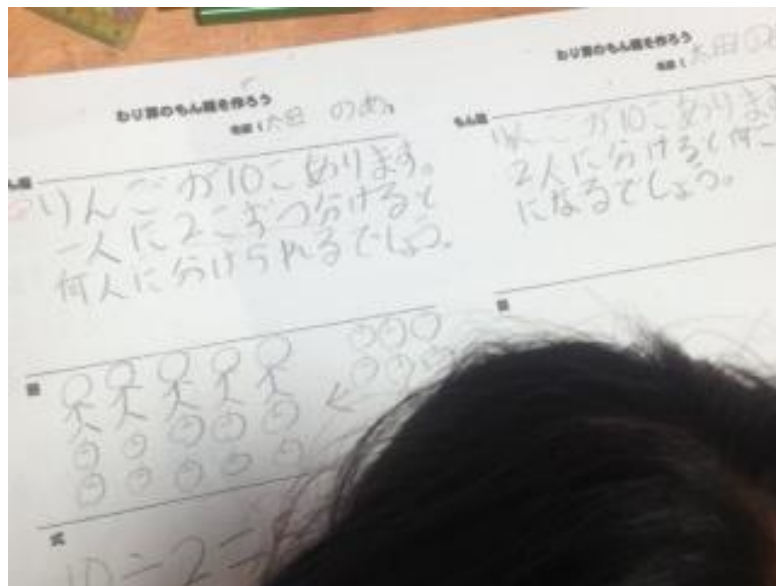 わり算のもん題を作ろう
名前（太田 のあ
りんごが10こあります。
一人に2こずつ分けると
何人に分けられるでしょう。
図
式
10÷2=
わり算のもん題を作ろう
名前（太田
もん題
りんごが10こあります
2人に分けると何こ
になるでしょう。
図